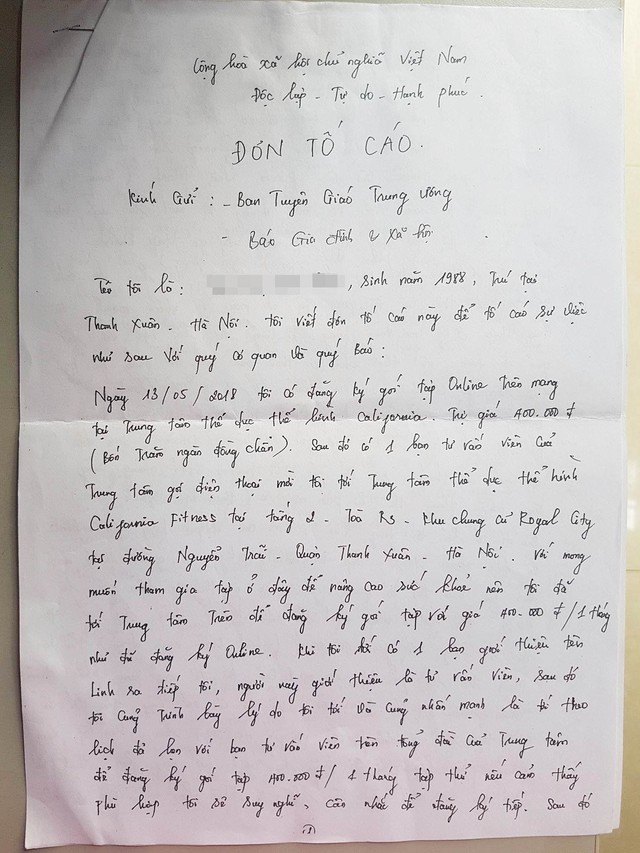 Cộng hòa xã hội chủ nghĩa Việt Nam
Độc lập - Tự do - Hạnh phúc.
ĐƠN TỐ CÁO.
Kính Gửi : - Ban Tuyên Giáo Trung Ương
- Báo Gia đình & Xã hội.
Tên tôi là : , sinh năm 1988, Trú tại
Thanh Xuân - Hà Nội. Tôi viết đơn tố cáo này để tố cáo sự việc
như sau với quý cơ quan và quý Báo :
Ngày 13/05/2018 tôi có đăng ký gói tập Online trên mạng
tại Trung tâm thể dục thể hình California. Trị giá 400.000 đ
(Bốn Trăm ngàn đồng chẵn). Sau đó có 1 bạn tư vấn viên của
Trung tâm gọi điện thoại mời tôi tới Trung tâm thể dục thể hình
California Fitness tại tầng 2 - Toà R5 - Khu chung cư Royal City
tại đường Nguyễn Trãi - Quận Thanh Xuân - Hà Nội. Với mong
muốn tham gia tập ở đây để nâng cao sức khoẻ nên tôi đã
tới Trung tâm Trên để đăng ký gói tập với giá 400.000 đ/1 tháng
như đã đăng ký Online. Khi tôi tới có 1 bạn giới thiệu tên
Linh ra tiếp tôi, người này giới thiệu là tư vấn viên, sau đó
tôi cũng trình bày lý do tôi tới và cũng nhấn mạnh là tới theo
lịch đã hẹn với bạn tư vấn viên trên tổng đài của Trung tâm
để đăng ký gói tập 400.000 đ/1 tháng tập thử nếu cảm thấy
phù hợp tôi sẽ suy nghĩ, cân nhắc để đăng ký tiếp. Sau đó
1